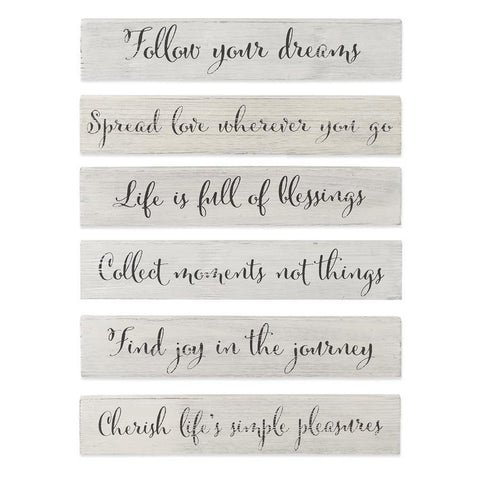 Follow your dreams
Spread love wherever you go
Life is full of blessings
Collect moments not things
Find joy in the journey
Cherish life's simple pleasures